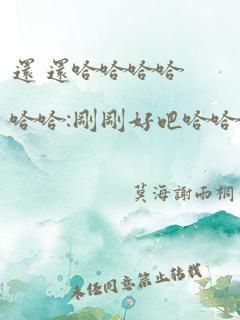 還 還哈哈哈哈
哈哈:剛剛好吧哈哈
莫海謝而桐
未經同意禁止轉載